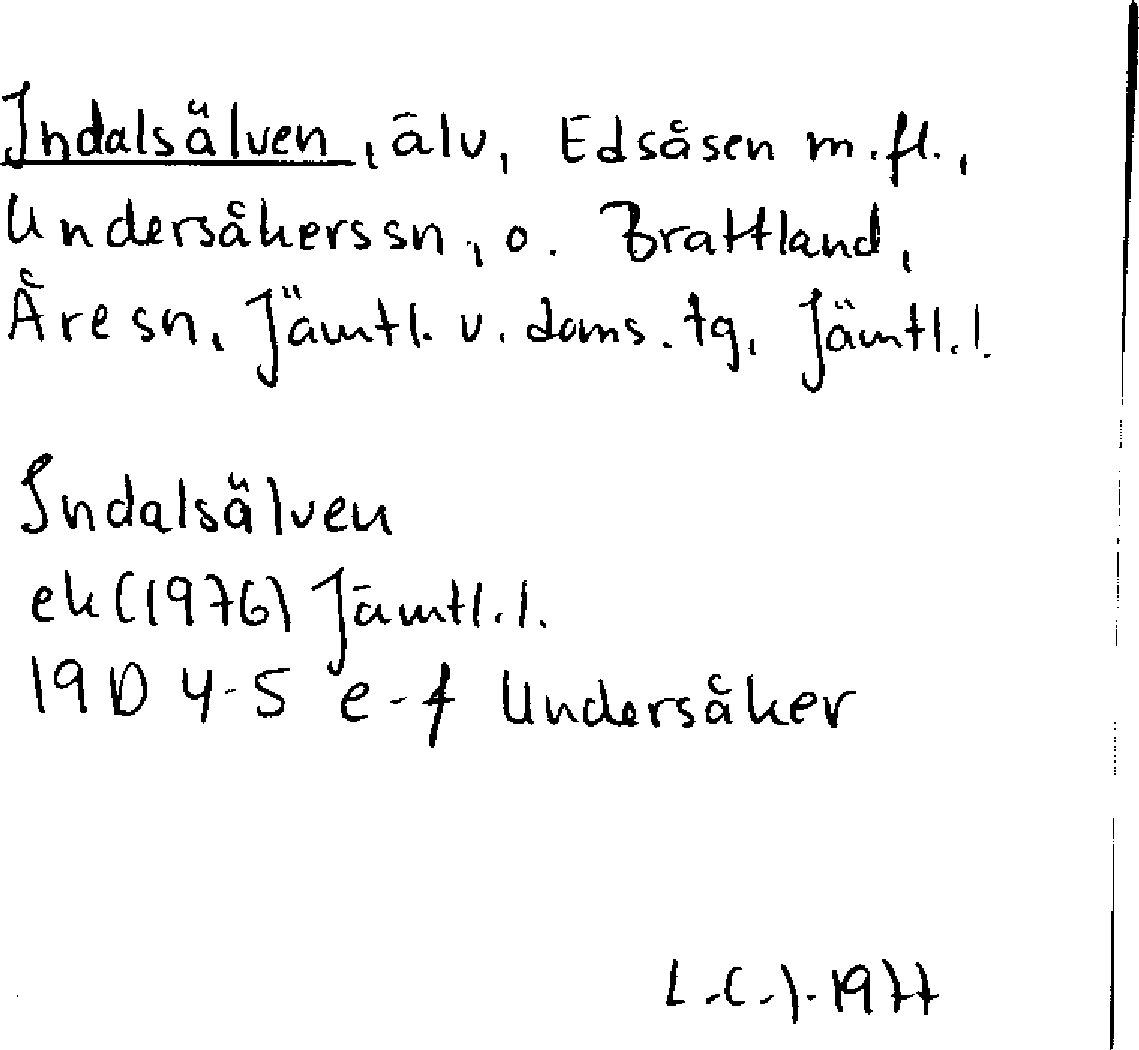 Indalsälven, älv, Edsåsen m.fl.,
Undersåkers sn, o. Brattland,
Åre sn, Jämtl. v. doms. tg, Jämtl.l.
Indalsälven
ek (1976) Jämtl.l.
19D 4-5 e-f Undersåker
L.-C.J. 1977